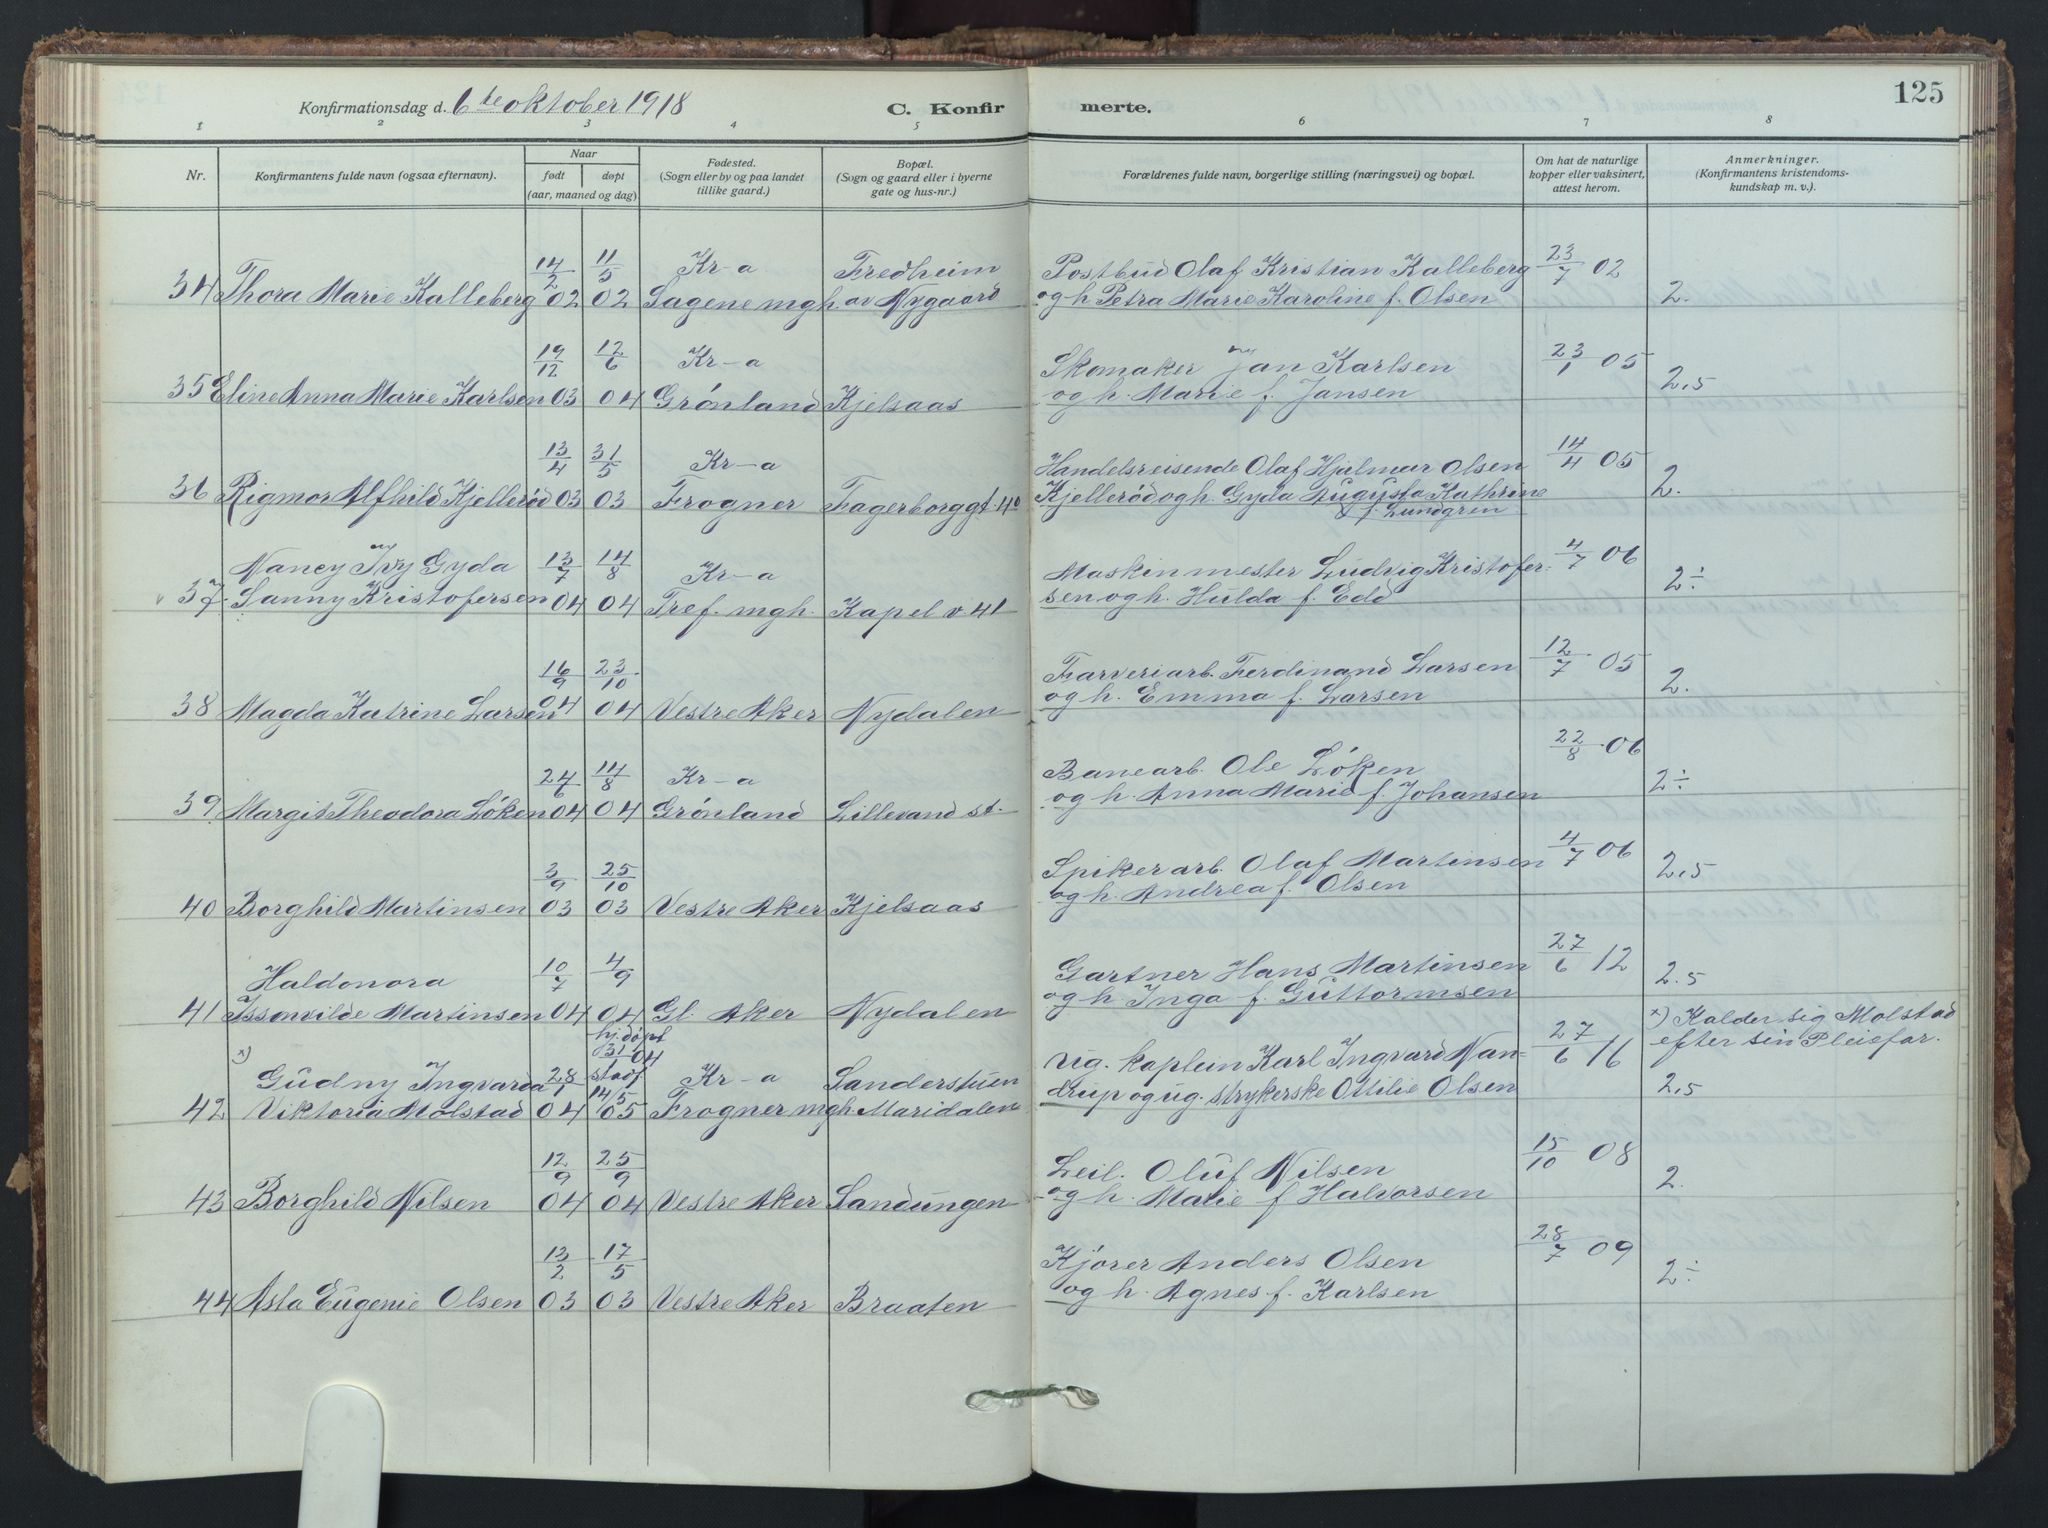 125
Konfirmationsdag d. 6te oktober 1918 C. Konfir merte.
1 2 3 4 5 6 7 8
Nr.
Konfirmantens fulde navn (ogsaa efternavn).
Naar
født døpt
(aar, maaned og dag)
Fødested.
(Sogn eller by og paa landet
tillike gaard.)
Bopæl.
(Sogn og gaard eller i byerne
gate og hus-nr.)
Forældrenes fulde navn, borgerlige stilling (næringsvei) og bopæl.
Om hat de naturlige
kopper eller vaksinert,
attest herom.
Anmerkninger.
(Konfirmantens kristendoms-
kundskap m. v.).
14/2 11/5 Kr-a Fredheim Postbud Olaf Kristian Kalleberg 23/7 02
34 Thora Marie Kalleberg 02 02 Sagene mgh. av Nygaard og h. Petra Marie Karoline f. Olsen 2.
19/12 12/6 Kr-a Skomaker Jan Karlsen 23/1 05
35 Eline Anna Marie Karlsen 03 04 Grónland Kjelsaas og h. Marie f. Jansen 2,5
13/4 31/5 Kr-a Handelsreisende Olaf Hjalmar Olsen 14/4 05
36 Rigmor Alfhild Kjellerød 03 03 Frogner Fagerborggt. 40 Kjellerød og h. Gyda Augusta Kathrine 2.
f. Lundgren
Nancy Ivy Gyda 13/7 14/8 Kr-a Maskinmester Ludvig Kristofer- 4/7 06
37 Sanny Kristofersen 04 04 Tref. mgh. Kapel v 41 sen og h. Hulda f. Edd 2÷
16/9 23/10 Farveriarb. Ferdinand Larsen 12/7 05
38 Magda Katrine Larsen 04 04 Vestre Aker Nydalen og h. Emma f. Larsen 2.
24/6 14/8 Kr-a Banearb. Ole Lóken 22/8 06
39 Margit Theodora Lóken 04 04 Grónland Lillevand st. og h. Anna Marie f. Johansen 2÷
3/9 25/10 Spikerarb. Olaf Martinsen 4/7 06
40 Borghild Martinsen 03 03 Vestre Aker Kjelsaas og h. Andrea f. Olsen 2,5
Haldonora 10/7 4/9 Gartner Hans Martinsen 27/6 12
41 Issonvilde Martinsen 04 04 Gl. Aker Nydalen og h. Inga f. Guttormsen 2.5
hj. dópt 31/1 04 x) Kalder sig Molstad
x) Gudny Ingvarda 28/1 stadf. Kr-a Sanderstuen ug. kaptein Karl Ingvard Nan- 27/6 16 efter sin Pleiefar.
42 Viktoria Molstad 04 14/5 05 Frogner mgh. Maridalen drup og ug. strykerske Ottilie Olsen 2,5
12/9 25/9 Leil. Oluf Nilsen 15/10 08
43 Borghild Nilsen 04 04 Vestre Aker Sandungen og h. Marie f Halvorsen 2.
13/2 17/5 Kjórer Anders Olsen 28/7 09
44 Asta Eugenie Olsen 03 03 Vestre Aker Braaten og h. Agnes f. Karlsen 2÷